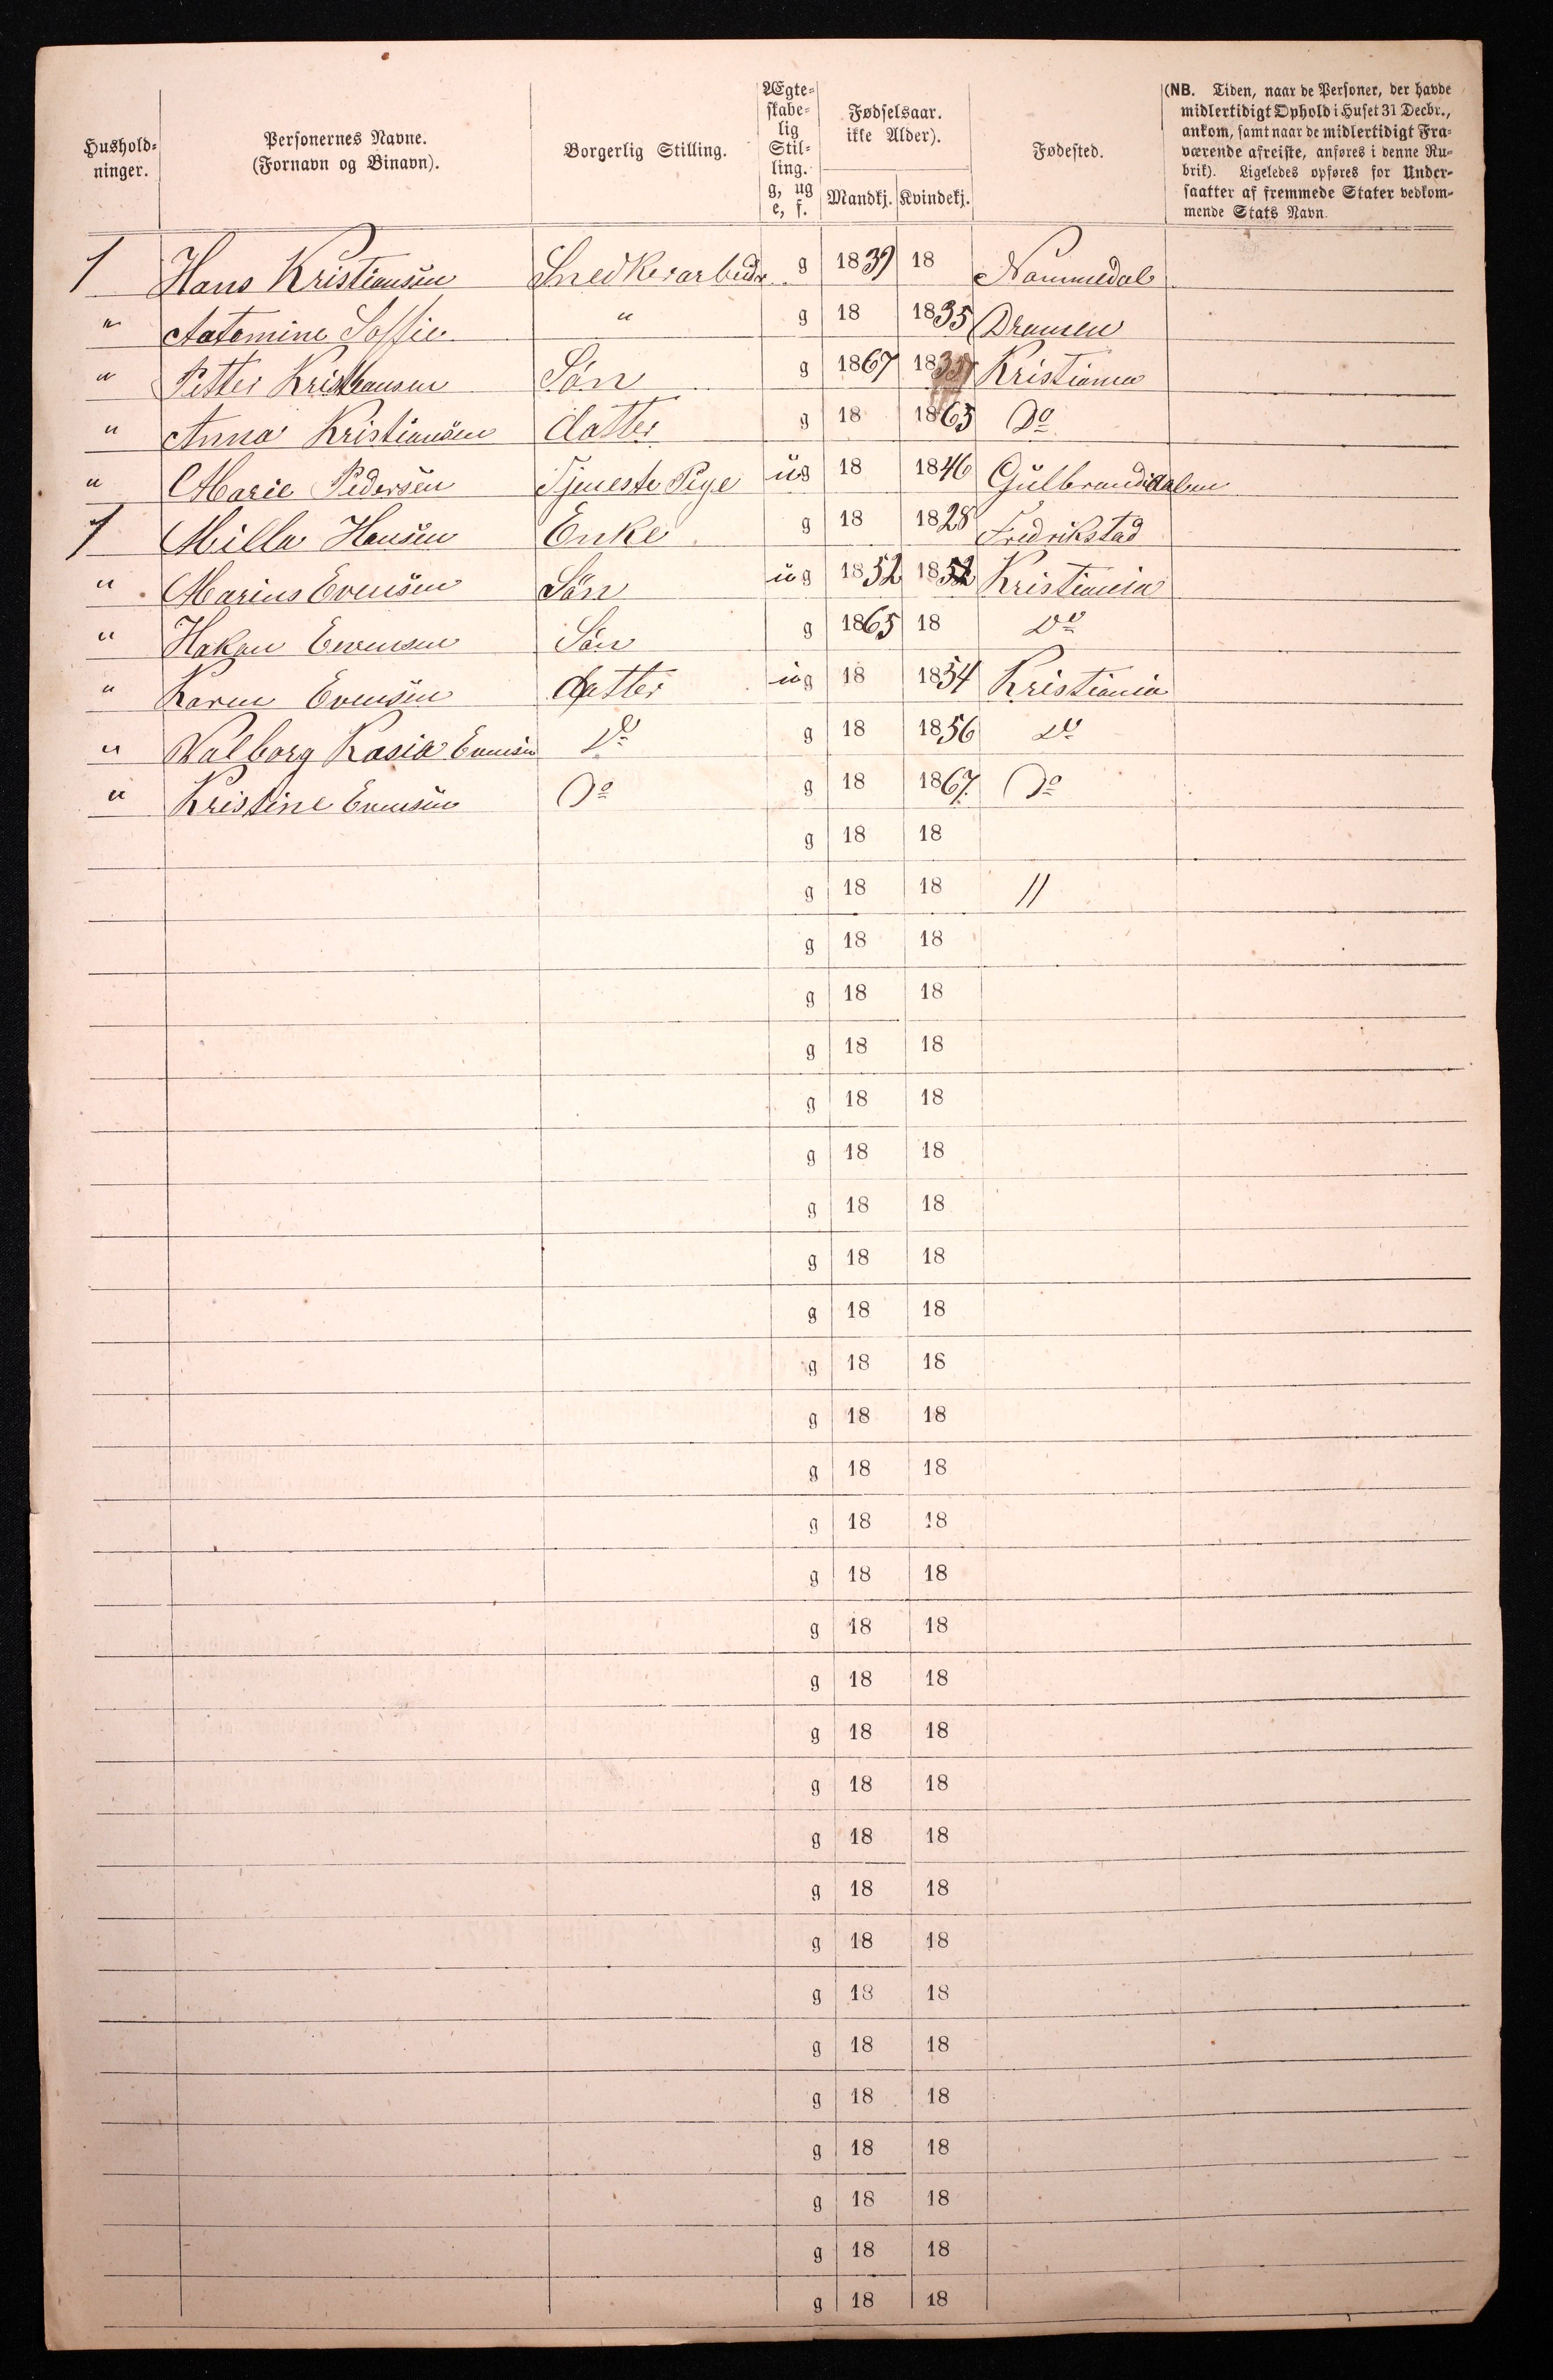 Hushold-
ninger.
Personernes Navne.
(Fornavn og Binavn).
Borgerlig Stilling.
Ægte-
skabe-
lig
Stil-
ling.
g, ug
e, f.
Fødselsaar.
ikke Alder).
Mandkj. Kvindekj.
Fødested.
(NB. Tiden, naar de Personer, der havde
midlertidigt Ophold i Huset 31 Decbr.,
ankom, samt naar de midlertidigt Fra-
værende afreiste, anføres i denne Ru-
brik). Ligeledes opføres for Under-
saatter af fremmede Stater vedkom-
mende Stats Navn.
1 Hans Kristiansen Snedkerarbeider g 1839 18 Nammedal
" Aatomine Soffie " g 18 1835 Dramen
" Petter Kristiansen Sön g 1867 18 Kristiania
" Anna Kristiansen datter g 18 1865 Do
" Marie Pedersen Tjeneste Pige ug 18 1846 Gulbrandsdalen
1 Milla Hansen Enke g 18 1828 Fredrikstad
" Marius Evensen Sön ug 1852 1852 Kristiania
" Hakan Evensen Sön g 1865 18 Do
" Karen Evensen datter ug 18 1854 Kristiania
" Valborg Kasia Evensen Do g 18 1856 Do
" Kristine Evensen Do g 18 1867 Do
g 18 18
g 18 18 "
g 18 18
g 18 18
g 18 18
g 18 18
g 18 18
g 18 18
g 18 18
g 18 18
g 18 18
g 18 18
g 18 18
g 18 18
g 18 18
g 18 18
g 18 18
g 18 18
g 18 18
g 18 18
g 18 18
g 18 18
g 18 18
g 18 18
g 18 18
g 18 18
g 18 18
g 18 18
g 18 18